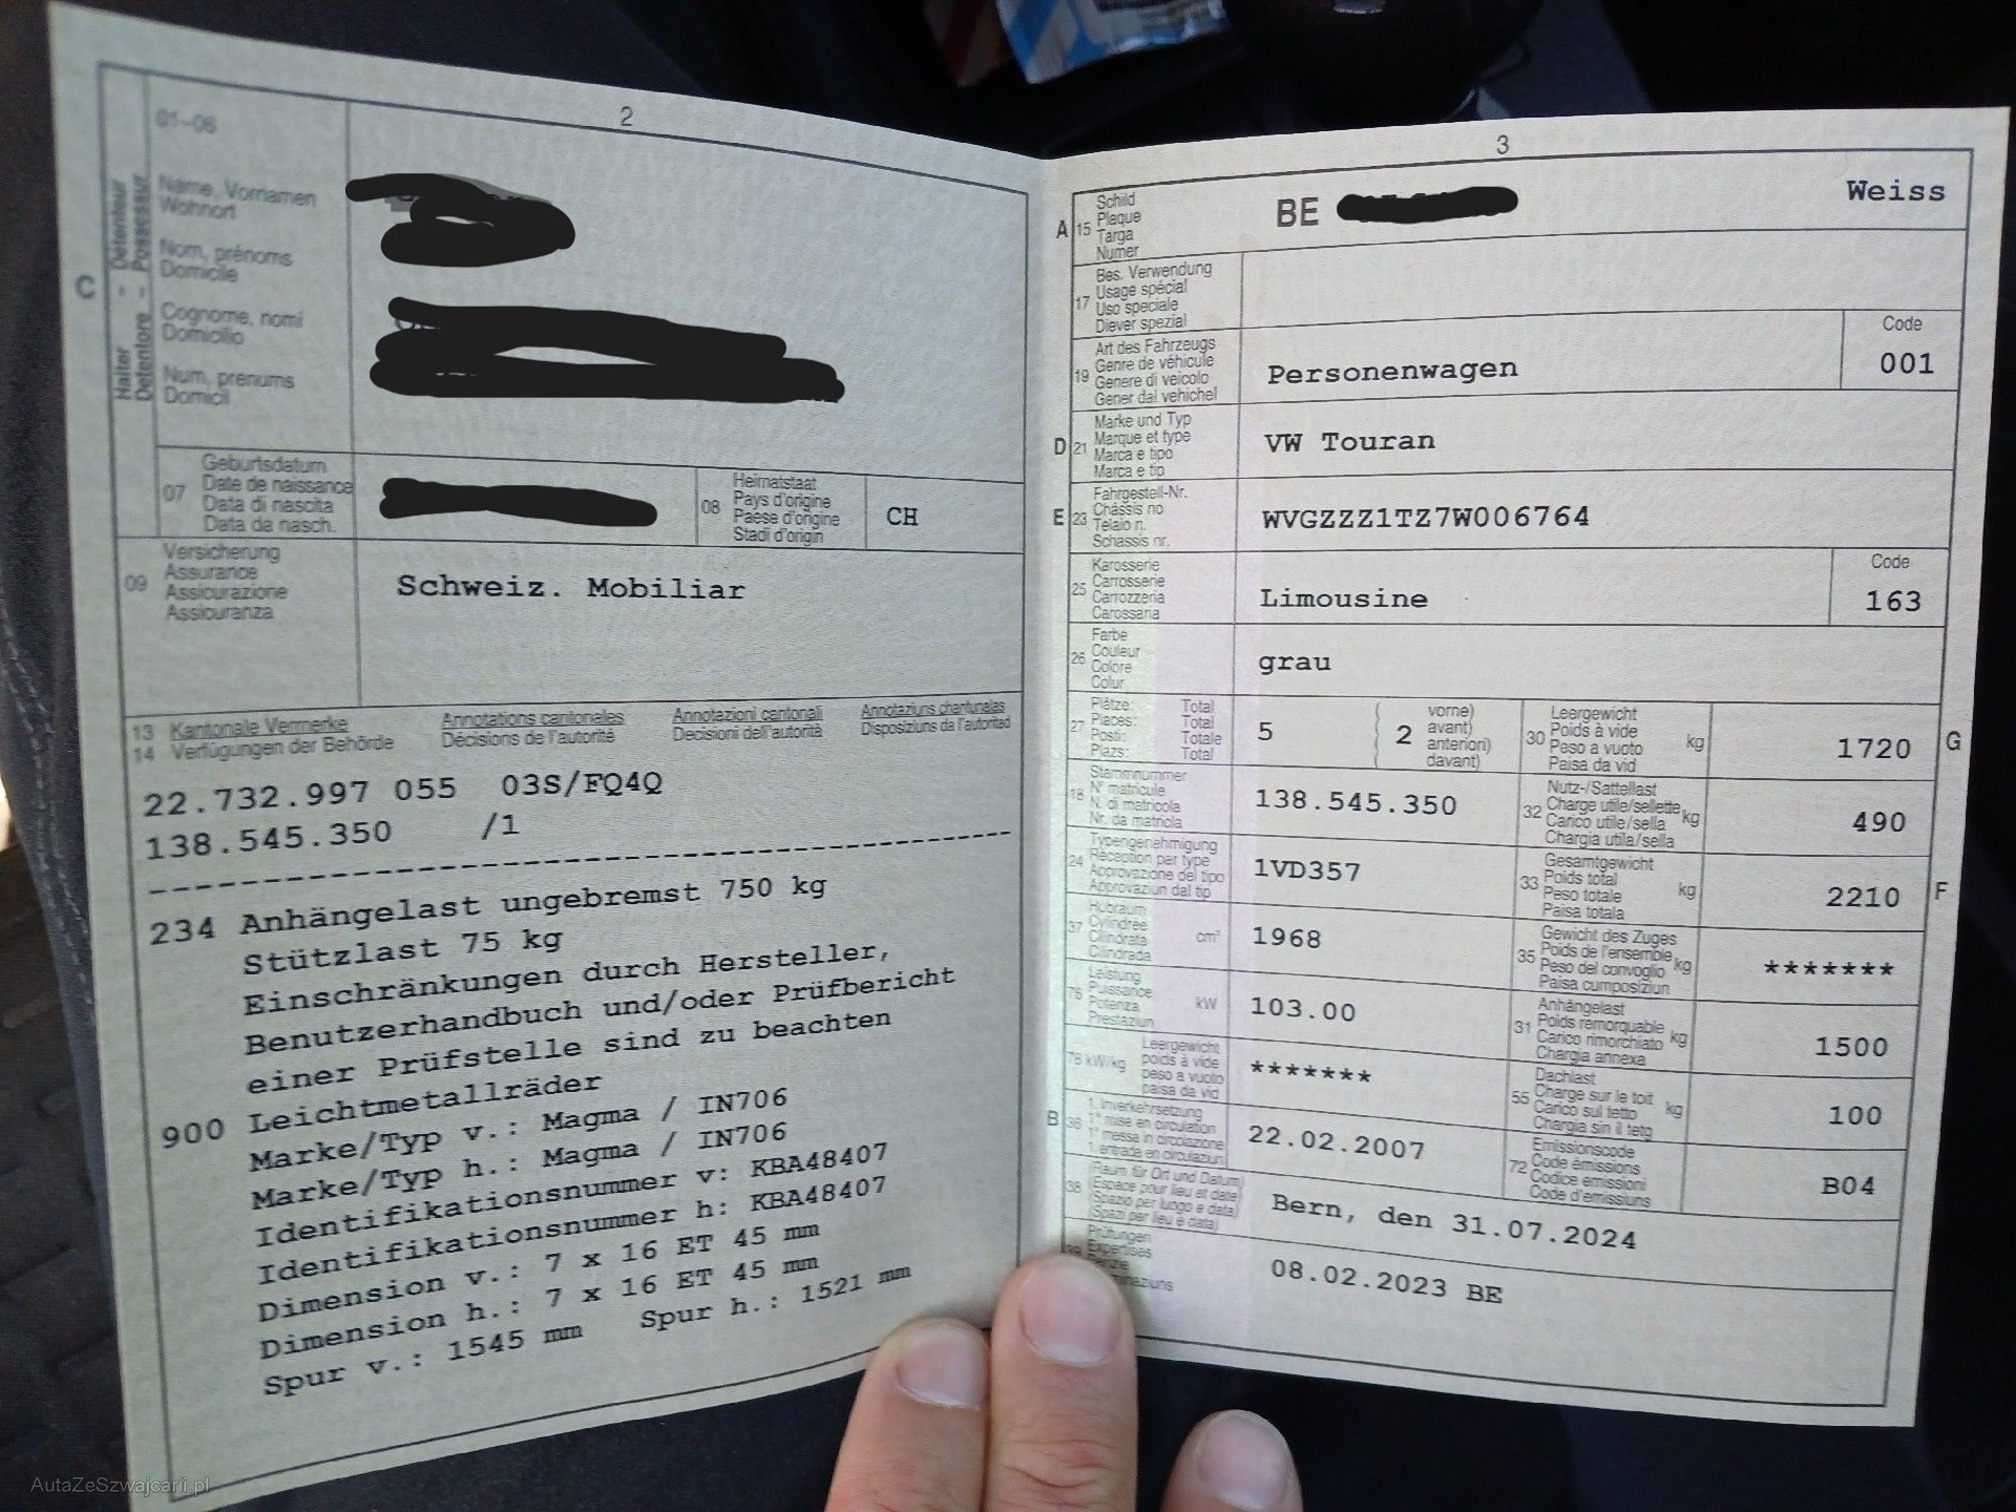 2
01-06
C
Halter - Détenteur
Detentore - Possessur
Name, Vornamen
Wohnort
Nom, prénoms
Domicile
Cognome, nomi
Domicilio
Num, prenums
Domicil
07
Geburtsdatum
Date de naissance
Data di nascita
Data da nasch.
08
Heimatstaat
Pays d'origine
Paese d'origine
Stadi d'origin
CH
09
Versicherung
Assurance
Assicurazione
Assicuranza
Schweiz. Mobiliar
13 Kantonale Vermerke Annotations cantonales Annotazioni cantonali Annotaziuns chantunalas
14 Verfügungen der Behörde Décisions de l'autorité Decisioni dell'autorità Disposiziuns da l'autoritad
22.732.997 055 03S/FQ4Q
138.545.350 /1
234 Anhängelast ungebremst 750 kg
Stützlast 75 kg
Einschränkungen durch Hersteller,
Benutzerhandbuch und/oder Prüfbericht
einer Prüfstelle sind zu beachten
900 Leichtmetallräder
Marke/Typ v.: Magma / IN706
Marke/Typ h.: Magma / IN706
Identifikationsnummer v: KBA48407
Identifikationsnummer h: KBA48407
Dimension v.: 7 x 16 ET 45 mm
Dimension h.: 7 x 16 ET 45 mm
Spur v.: 1545 mm Spur h.: 1521 mm
3
A 15
Schild
Plaque
Targa
Numer
BE
Weiss
17
Bes. Verwendung
Usage spécial
Uso speciale
Diever spezial
19
Art des Fahrzeugs
Genre de véhicule
Genere di veicolo
Gener dal vehichel
Personenwagen
Code
001
D 21
Marke und Typ
Marque et type
Marca e tipo
Marca e tip
VW Touran
E 23
Fahrgestell-Nr.
Châssis no
Telaio n.
Schassis nr.
WVGZZZ1TZ7W006764
25
Karosserie
Carrosserie
Carrozzeria
Carossaria
Limousine
Code
163
26
Farbe
Couleur
Colore
Colur
grau
27
Plätze: Total
Places: Total
Posti: Totale
Plazs: Total
5
2
vorne)
avant)
anteriori)
davant)
30
Leergewicht
Poids à vide
Peso a vuoto
Paisa da vid
kg
1720
G
18
Stammnummer
N° matricule
N. di matricola
Nr. da matricla
138.545.350
32
Nutz-/Sattellast
Charge utile/sellette
Carico utile/sella
Chargia utila/sella
kg
490
24
Typengenehmigung
Réception par type
Approvazione del tipo
Approvaziun dal tip
1VD357
33
Gesamtgewicht
Poids total
Peso totale
Paisa totala
kg
2210
F
37
Hubraum
Cylindrée
Cilindrata
Cilindrada
cm³
1968
35
Gewicht des Zuges
Poids de l'ensemble
Peso del convoglio
Paisa cumposiziun
kg
*******
76
Leistung
Puissance
Potenza
Prestaziun
kW
103.00
31
Anhängelast
Poids remorquable
Carico rimorchiato
Chargia annexa
kg
1500
78 kW/kg
Leergewicht
poids à vide
peso a vuoto
paisa da vid
*******
55
Dachlast
Charge sur le toit
Carico sul tetto
Chargia sin il tetg
kg
100
B 36
1. Inverkehrsetzung
1re mise en circulation
1a messa in circolazione
1. entrada en circulaziun
22.02.2007
72
Emissionscode
Code émissions
Codice emissioni
Code d'emissiuns
B04
38
(Raum für Ort und Datum)
(Espace pour lieu et date)
(Spazio per luogo e data)
(Spazi per lieu e data)
Bern, den 31.07.2024
39
Prüfungen
Expertises
08.02.2023 BE
AutaZeSzwajcarii.pl